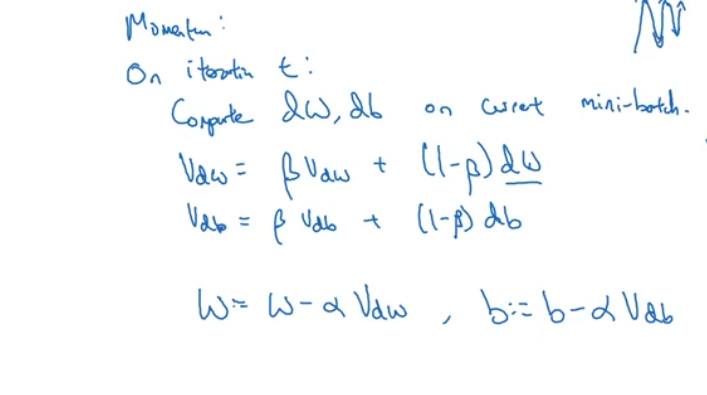 Momentum:
On iteration t:
Compute dW, db on current mini-batch.
Vdw = β Vdw + (1-β) dW
Vdb = β Vdb + (1-β) db
W := W - α Vdw , b := b - α Vdb